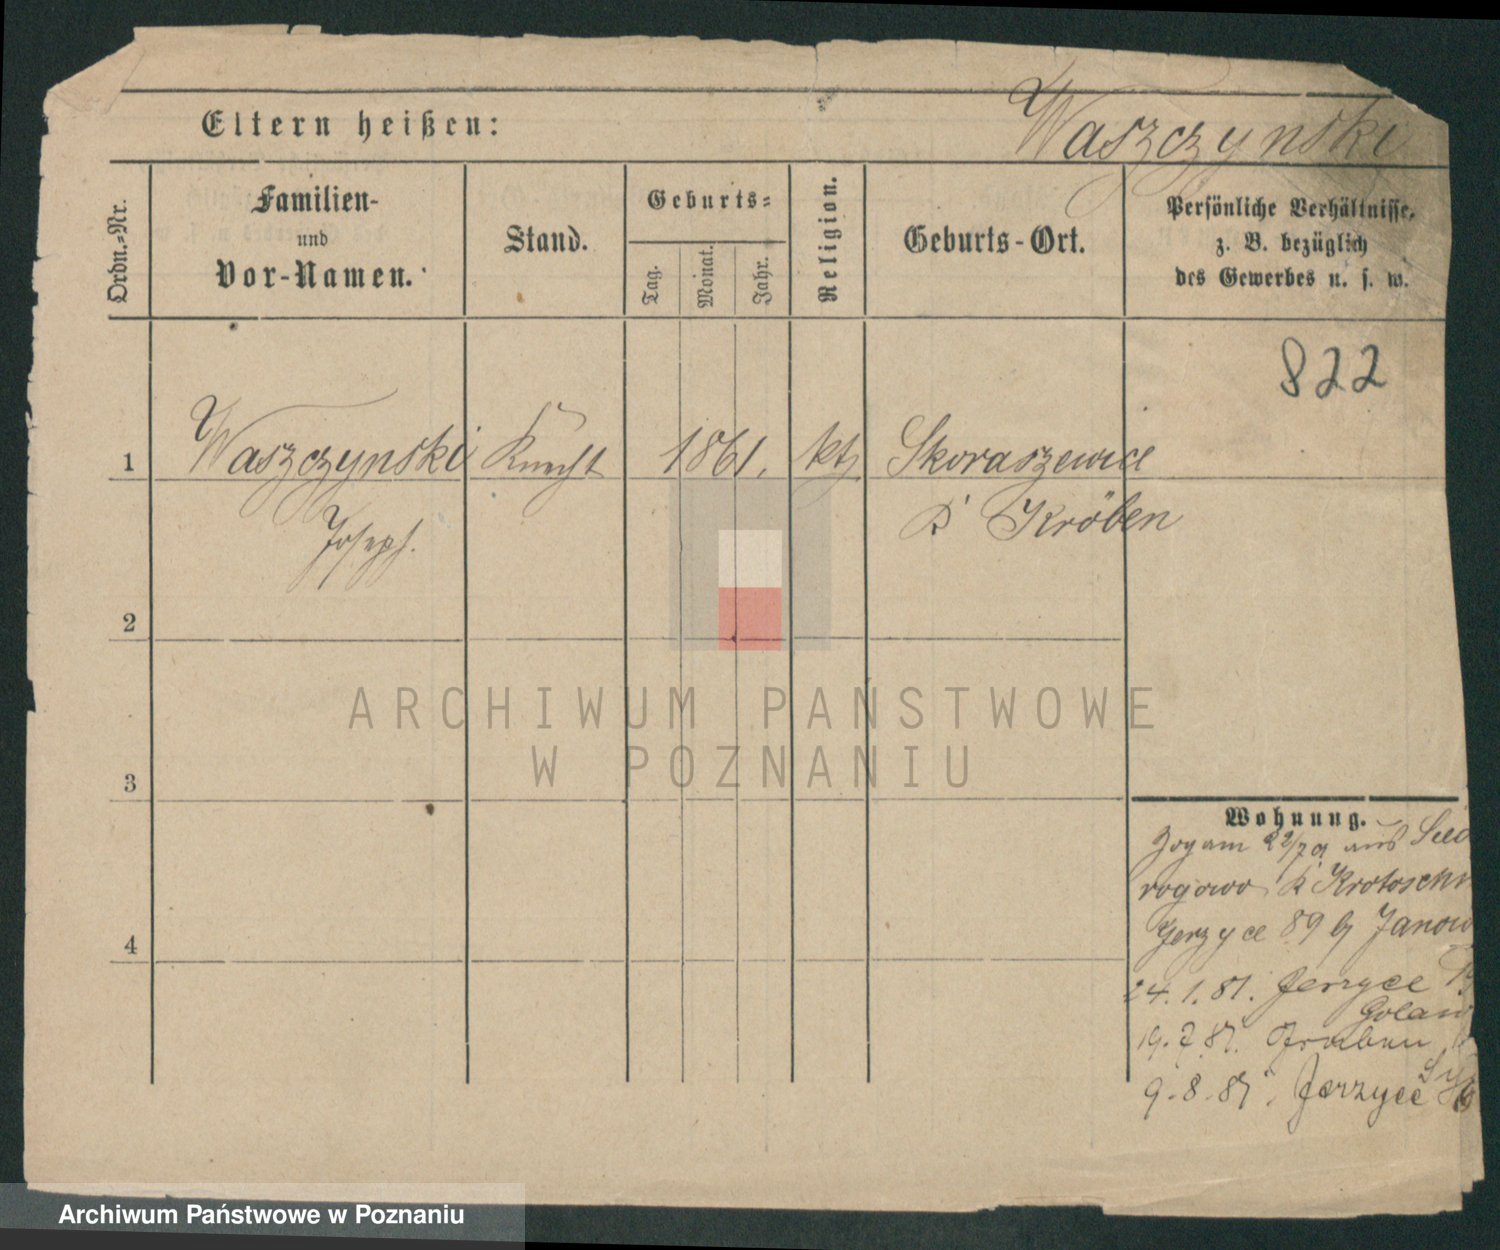 Eltern heißen:
Waszczynski
Ordn.=Nr.
Familien-
und
Vor-Namen.
Stand.
Geburts=
Tag.
Monat.
Jahr.
Religion.
Geburts-Ort.
Persönliche Verhältnisse,
z. B. bezüglich
des Gewerbes u. s. w.
822
1 Waszczynski Knecht 1861. kth Skoraszewice
Joseph. K Kröben
2
3
4
Wohnung.
Zog am aus
rogowo K Krotoschi
Jerzyce 89 b Janow
24.1.87. Jerzyce
Golan
19.7.87. Graben
9.8.87. Jerzyce
ARCHIWUM PAŃSTWOWE
W POZNANIU
Archiwum Państwowe w Poznaniu